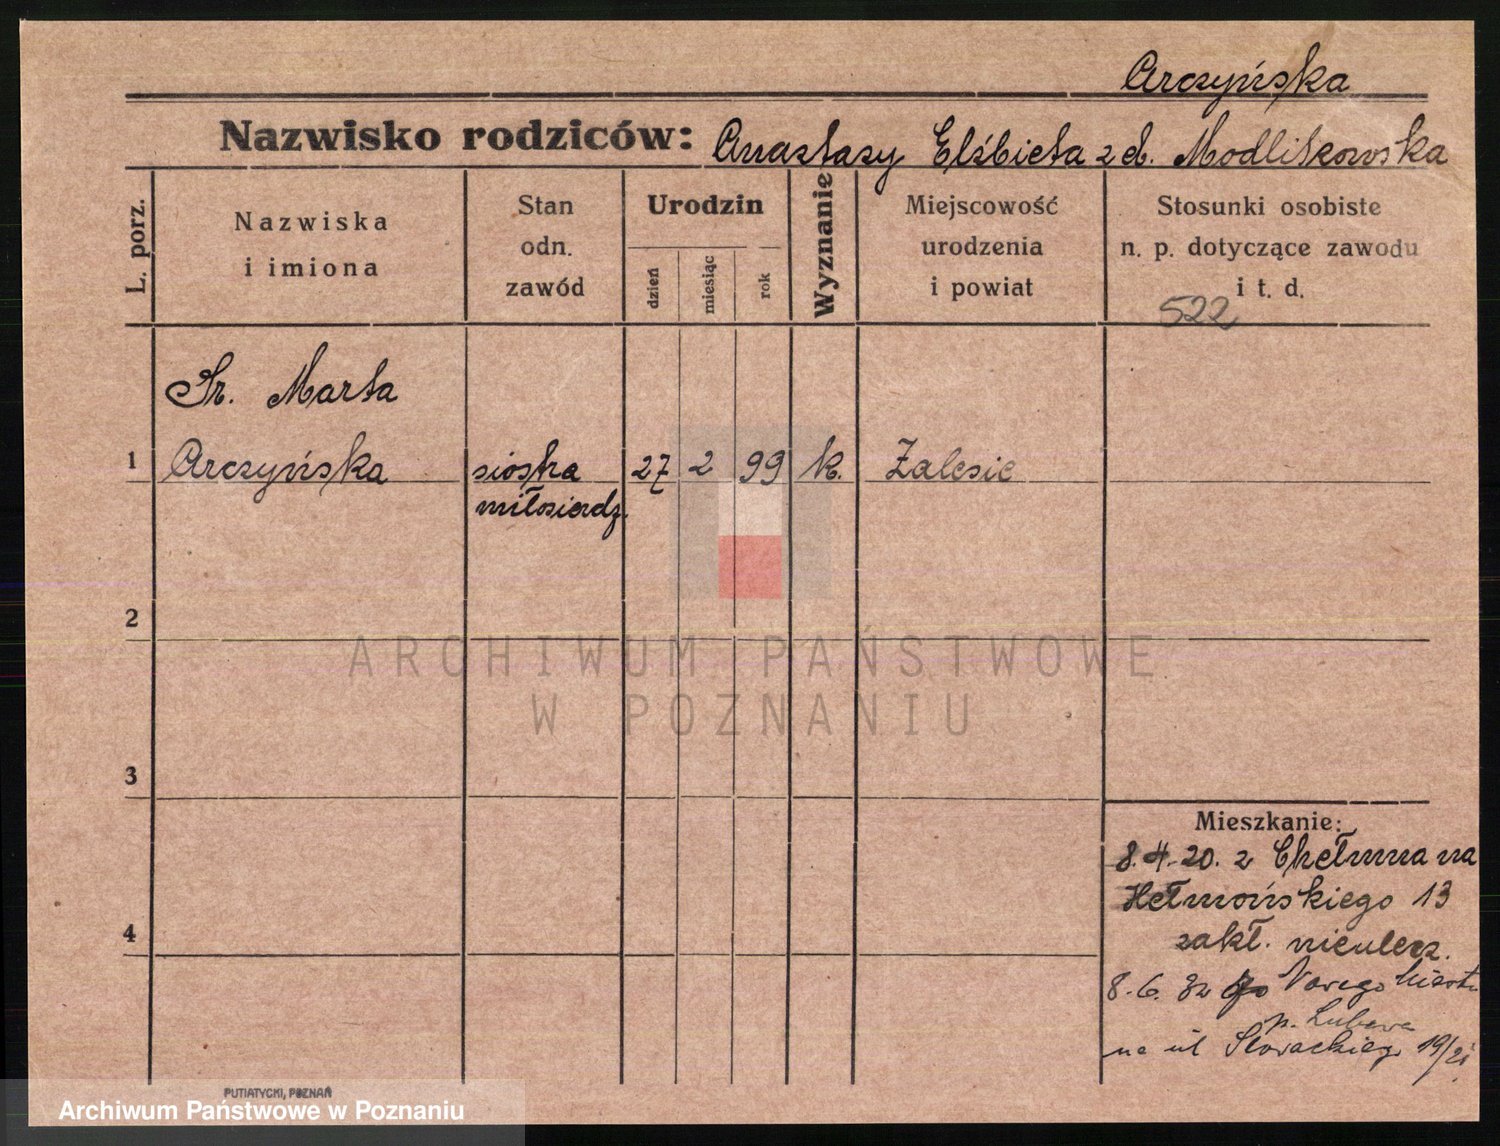 Arczyńska
Nazwisko rodziców: Anastazy Elżbieta z d. Modlikowska
L. porz.
Nazwiska
i imiona
Stan
odn.
zawód
Urodzin
dzień
miesiąc
rok
Wyznanie
Miejscowość
urodzenia
i powiat
Stosunki osobiste
n. p. dotyczące zawodu
i t. d.
522
Sr. Marta
1 Arczyńska siostra 27 2 99 k. Zalesie
miłosierdz.
2
ARCHIWUM PAŃSTWOWE
W POZNANIU
3
Mieszkanie:
8.4.20. z Chełmna na
Hełmońskiego 13
4
zakł. nieulecz.
8.6.32 do Nowego Miasta
p. Lubawa
na ul Słowackiego 19/21
PUTIATYCKI, POZNAŃ
Archiwum Państwowe w Poznaniu